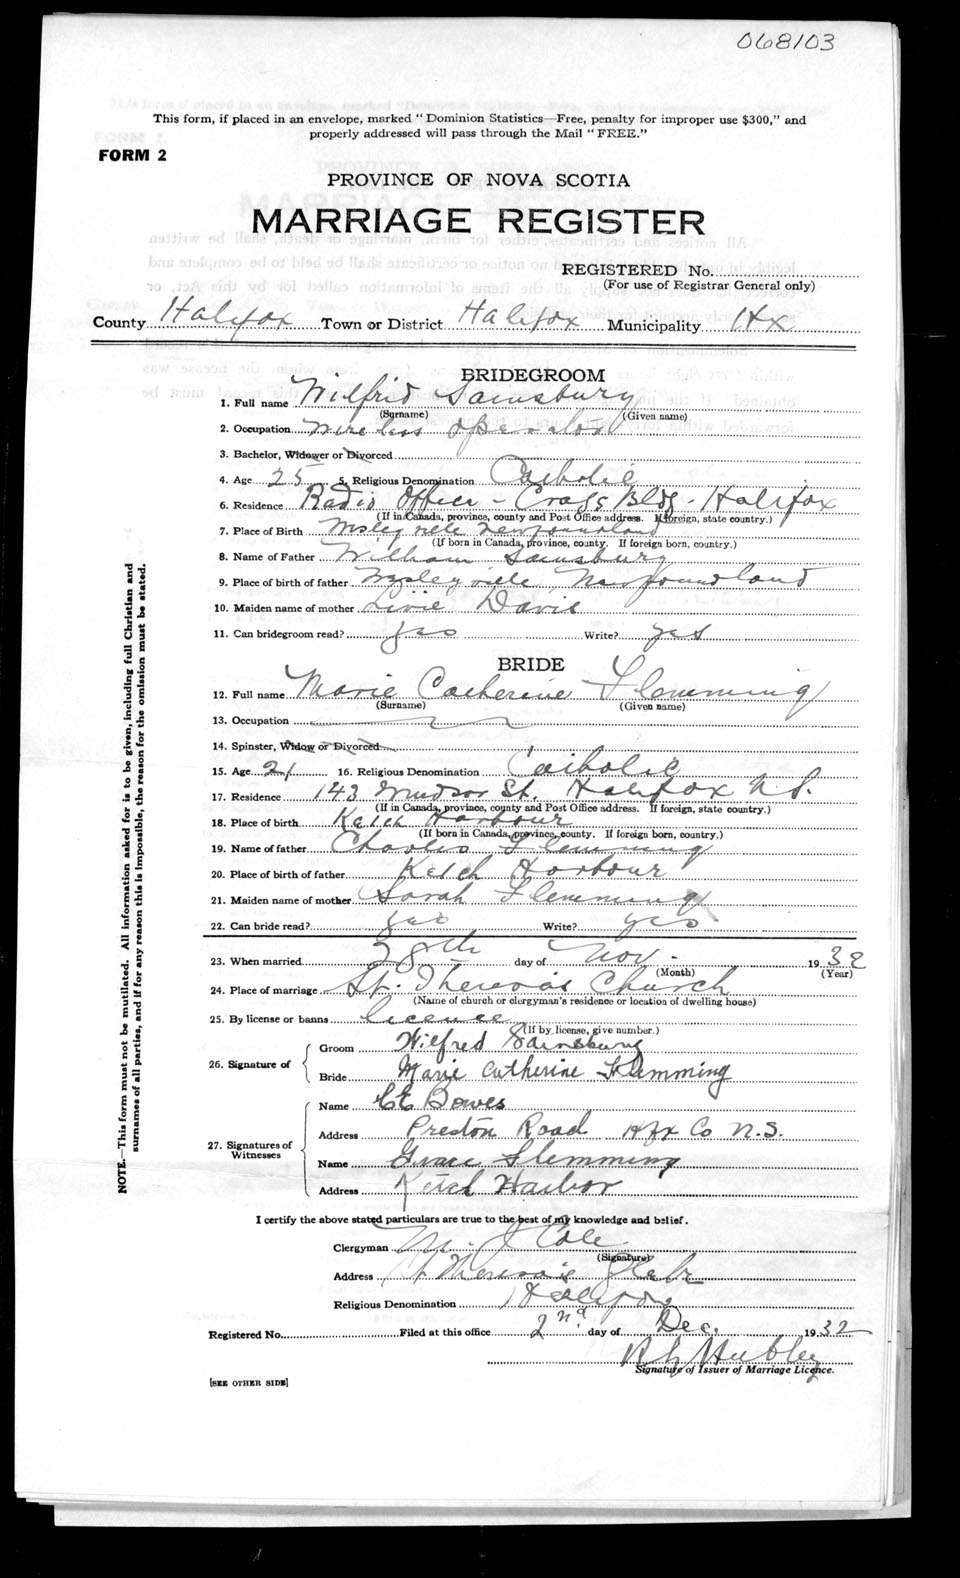 068103
This form, if placed in an envelope, marked "Dominion Statistics—Free, penalty for improper use $300," and
properly addressed will pass through the Mail "FREE."
FORM 2
PROVINCE OF NOVA SCOTIA
MARRIAGE REGISTER
REGISTERED No.
(For use of Registrar General only)
County Halifax Town or District Halifax Municipality Hx
BRIDEGROOM
1. Full name Wilfrid Sainsbury
(Surname) (Given name)
2. Occupation Wireless Operator
3. Bachelor, Widower or Divorced
4. Age 25 5. Religious Denomination Catholic
6. Residence Radio Office - Cragg Bldg - Halifax
(If in Canada, province, county and Post Office address. If foreign, state country.)
7. Place of Birth Wesleyville Newfoundland
(If born in Canada, province, county. If foreign born, country.)
8. Name of Father William Sainsbury
9. Place of birth of father Wesleyville, Newfoundland
10. Maiden name of mother Livie Davis
11. Can bridegroom read? yes Write? yes
BRIDE
12. Full name Marie Catherine Flemming
(Surname) (Given name)
13. Occupation
14. Spinster, Widow or Divorced
15. Age 21 16. Religious Denomination Catholic
17. Residence 143 Windsor St. Halifax N.S.
(If in Canada, province, county and Post Office address. If foreign, state country.)
18. Place of birth Ketch Harbour
(If born in Canada, province, county. If foreign born, country.)
19. Name of father Charles Flemming
20. Place of birth of father Ketch Harbour
21. Maiden name of mother Sarah Flemming
22. Can bride read? yes Write? yes
23. When married 28th day of Nov. 1932
(Month) (Year)
24. Place of marriage St. Theresa's Church
(Name of church or clergyman's residence or location of dwelling house)
25. By license or banns licence
(If by license, give number.)
26. Signature of
Groom Wilfred Sainsbury
Bride Marie Catherine Flemming
27. Signatures of Witnesses
Name CE Bowes
Address Preston Road Hfx Co N.S.
Name Grace Flemming
Address Ketch Harbor
I certify the above stated particulars are true to the best of my knowledge and belief.
Clergyman J Cole
(Signature)
Address St Theresa's Glebe
Halifax
Religious Denomination
Registered No. Filed at this office 2nd day of Dec. 1932
Hubley
Signature of Issuer of Marriage Licence.
[SEE OTHER SIDE]
NOTE.—This form must not be mutilated. All information asked for is to be given, including full Christian and
surnames of all parties, and if for any reason this is impossible, the reason for the omission must be stated.